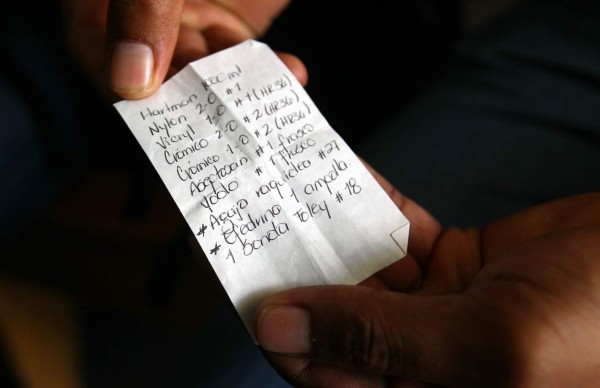 Hartman 1000 ml
Nylon 2-0 #1
Vicryl 1-0 #1 (HR36)
Crómico 2-0 #2 (HR36)
Crómico 1-0 #2 (HR36)
Aseptosan #1 frasco
Yodo #1 frasco
* Aguja raquidea #27
* Efedrina 1 ampolla
1 sonda Foley #18